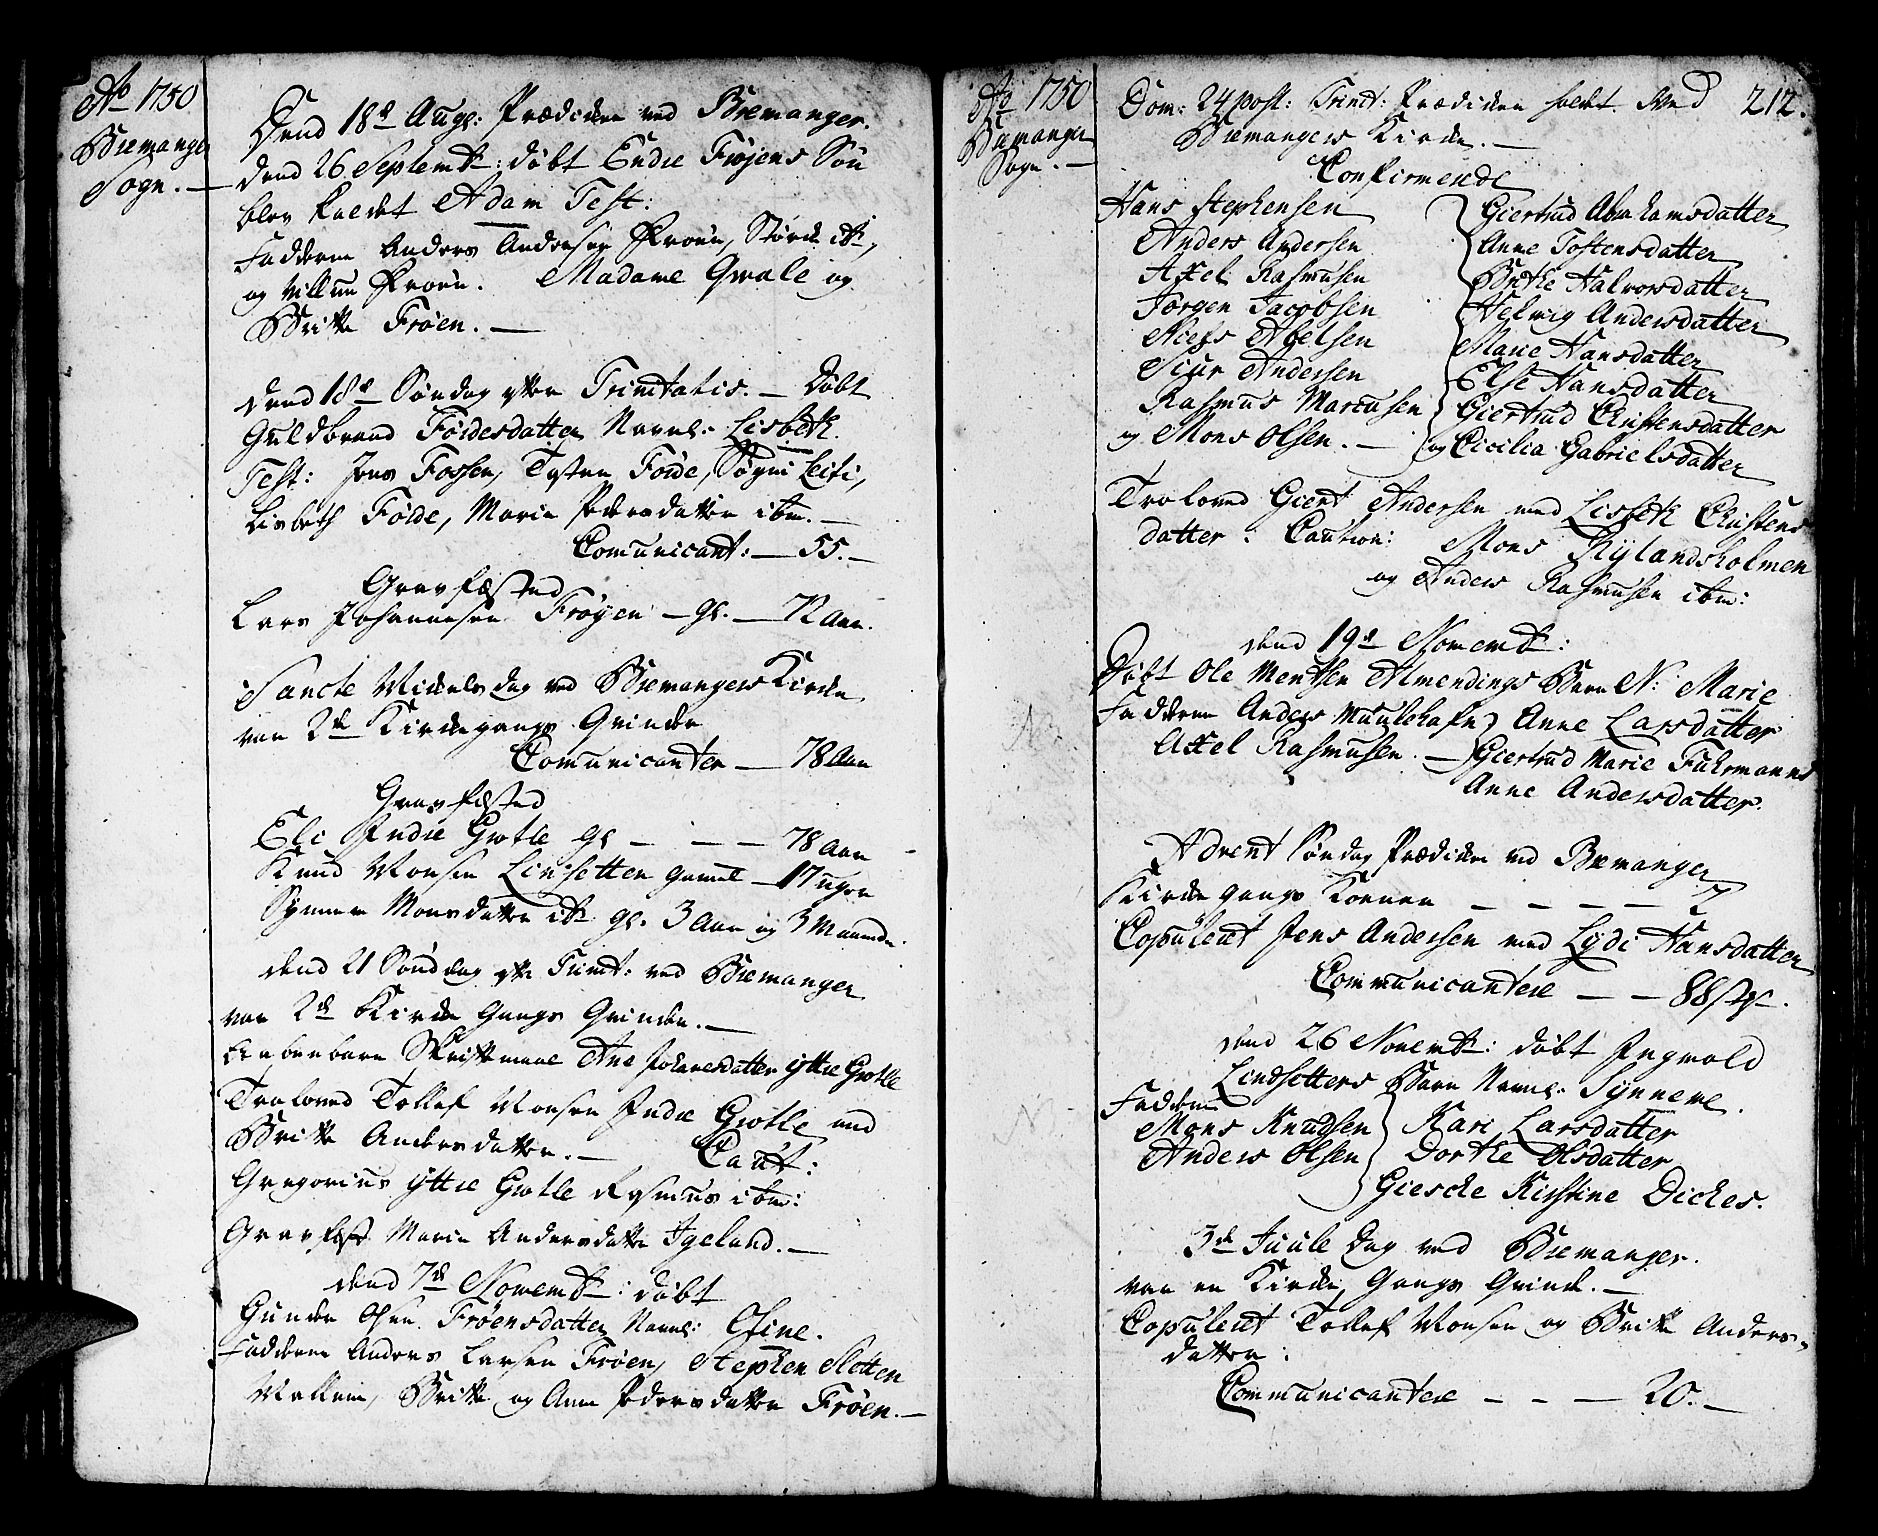 Ao 1750
Bremanger
Sogn. —
Dend 18de Augs: Prædicken ved Bremanger.
dend 26 Septembr: døbt Endre Frøjens Søn
blev kaldet Adam Test:
Faddern Anders Andersen Frøen, Størck ibm,
og Villum Frøen. Madame Qvale og
Britte Frøen. —
dend 18de Søndag efter Trinitatis. — Døbt
Guldbrand Førdesdatter Navnl: Lisbeth.
Test: Jens Fossen, Tosten Førde, Søgni Leiti,
Lisbeth Førde, Marin Pedersdatter ibm. —
Comunicant: — 55. —
Gravfæsted
Lars Johannesen Frøyen — gl. — 72 Aar.
Sancte Mickels dag ved Bremangers Kircke
var 2de Kirckegangs Qvinder
Comunicanter — 78 Aar
Gravfæsted
Eli Indre Grotle gl — — — 78 Aar
Knud Monsen Lindsetten gamel — 17 uger
Synneve Monsdatter ibm gl. 3 Aar og 3 Maaneder.
dend 21 Sønddag efter Trinit: ved Bremanger
var 2de Kircke Gangs Qvinder. —
Aabenbare Skriftemaal Ane Johanesdatter yttre Grotle
Troloved Tollef Monsen Indre Grotle med
Britte Andersdatter. — Caut:
Gregorius yttre Grotle Rasmus ibm:
Gravfæst Marin Andersdatter Igeland. —
dend 7de Novembr: døbt
Gunder Frøensdatter Navnl: Gine.
Faddern Anders Larsen Frøen, Stephen Slotten
Britte og Ane Pedersdatter Frøen. —
Ao 1750
Bremanger
Sogn. —
212.
Dom: 24 post: Trinit: Prædicken holdt ved
Bremangers Kircke. —
Confirmerede
Hans Stephensen
Anders Andersen
Axel Rasmusen
Jørgen Jacobsen
Niels Abelsen
Siur Andersen
Rasmus Marcusen
og Mons Olsen. —
Giertrud Abrahamsdatter
Anne Tostensdatter
Birthe Halvorsdatter
Helwig Andersdatter
Marie Hansdatter
Else Hansdatter
Giertrud Christensdatter
og Cicilia Gabrielsdatter
Troloved Giert Andersen med Lisbeth Christens
datter: Caution: Mons Rylandsholmen
og Anders Rasmusen ibm:
dend 19de Novembr:
Døbt Ole Mentsen Almendings Barn N: Marie
Faddern Anders Muulehafn, Anne Larsdatter
Axel Rasmusen. — Giertrud Marie Fuhrmanns
Anne Andersdatter.
Advent Søndag Prædicken ved Bremanger
Kircke gangs Koener — — — — 7
Copuleret Jens Andersen med Lydi Hansdatter
Communicantere — — 88 stk.
dend 26 Novembr: døbt Ingvold
Lindsetters Barn Navnl: Synneve.
Faddern
Mons Knudsen
Anders Olsen
Kari Larsdatter
Dorthe Olsdatter
Giesche Kirstine Dickes.
3de Juule Dag ved Bremanger.
var en Kircke Gangs Qvinde. —
Copuleret Tollef Monsen og Britte Anders-
datter:
Communicantere — — — 20. —